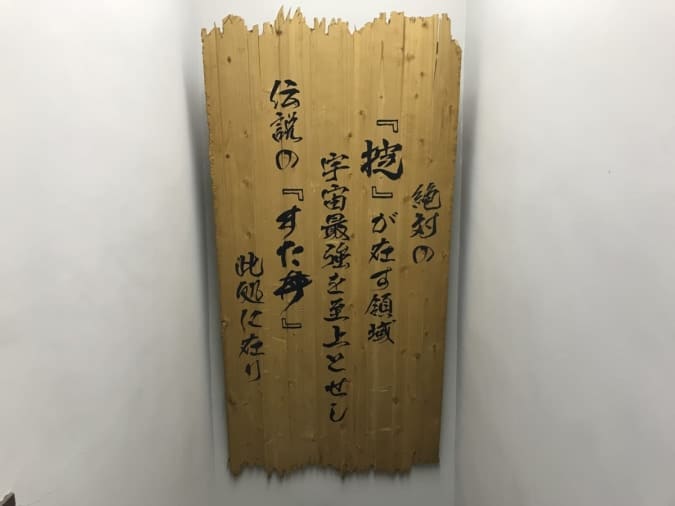 絶対の
『掟』が在す領域
宇宙最強を至上とせし
伝説の『すた丼』
此処に在り